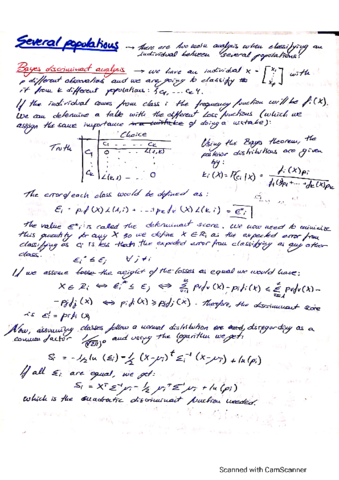 Several populations → there are two main analysis when classifying an
individual between several populations:
Bayes discriminant analysis → we have an individual x = [x₁ ⋮ xp] with
p different observations and we are going to classify
it from k different populations: {C₁, ... Ck}.
If the individual comes from class i the frequency function will be fi(x).
We can determine a table with the different loss functions (which we
assign the same importance of doing a mistake):
Choice
Truth
C₁ ... Ck
C₁ 0 L(1,k)
Ck L(k,1) ... 0
Using the Bayes theorem, the
posterior distributions are given
by:
The error of each class would be defined as:
The value E*i is called the determinant score. We now need to minimise
this quantity for any X so we define X ∈ Ri as the expected error from
classifying as Ci is less than the expected error from classifying as any other
class.
Ei* ≤ Ej ∀ j ≠ i
If we assume the weight of the losses as equal we would have:
Therefore, the discriminant score
is
Now, assuming classes follow a normal distribution disregarding as a
common factor and using the logarithm we get:
Si = -1/2 ln(Σi) - 1/2 (x-μi)ᵗ Σi⁻¹ (x-μi) + ln(pi)
If all Σi are equal, we get:
Si = Xᵀ Σ⁻¹ μi - 1/2 μiᵀ Σ⁻¹ μi + ln(pi)
which is the quadratic discriminant function needed.
Scanned with CamScanner